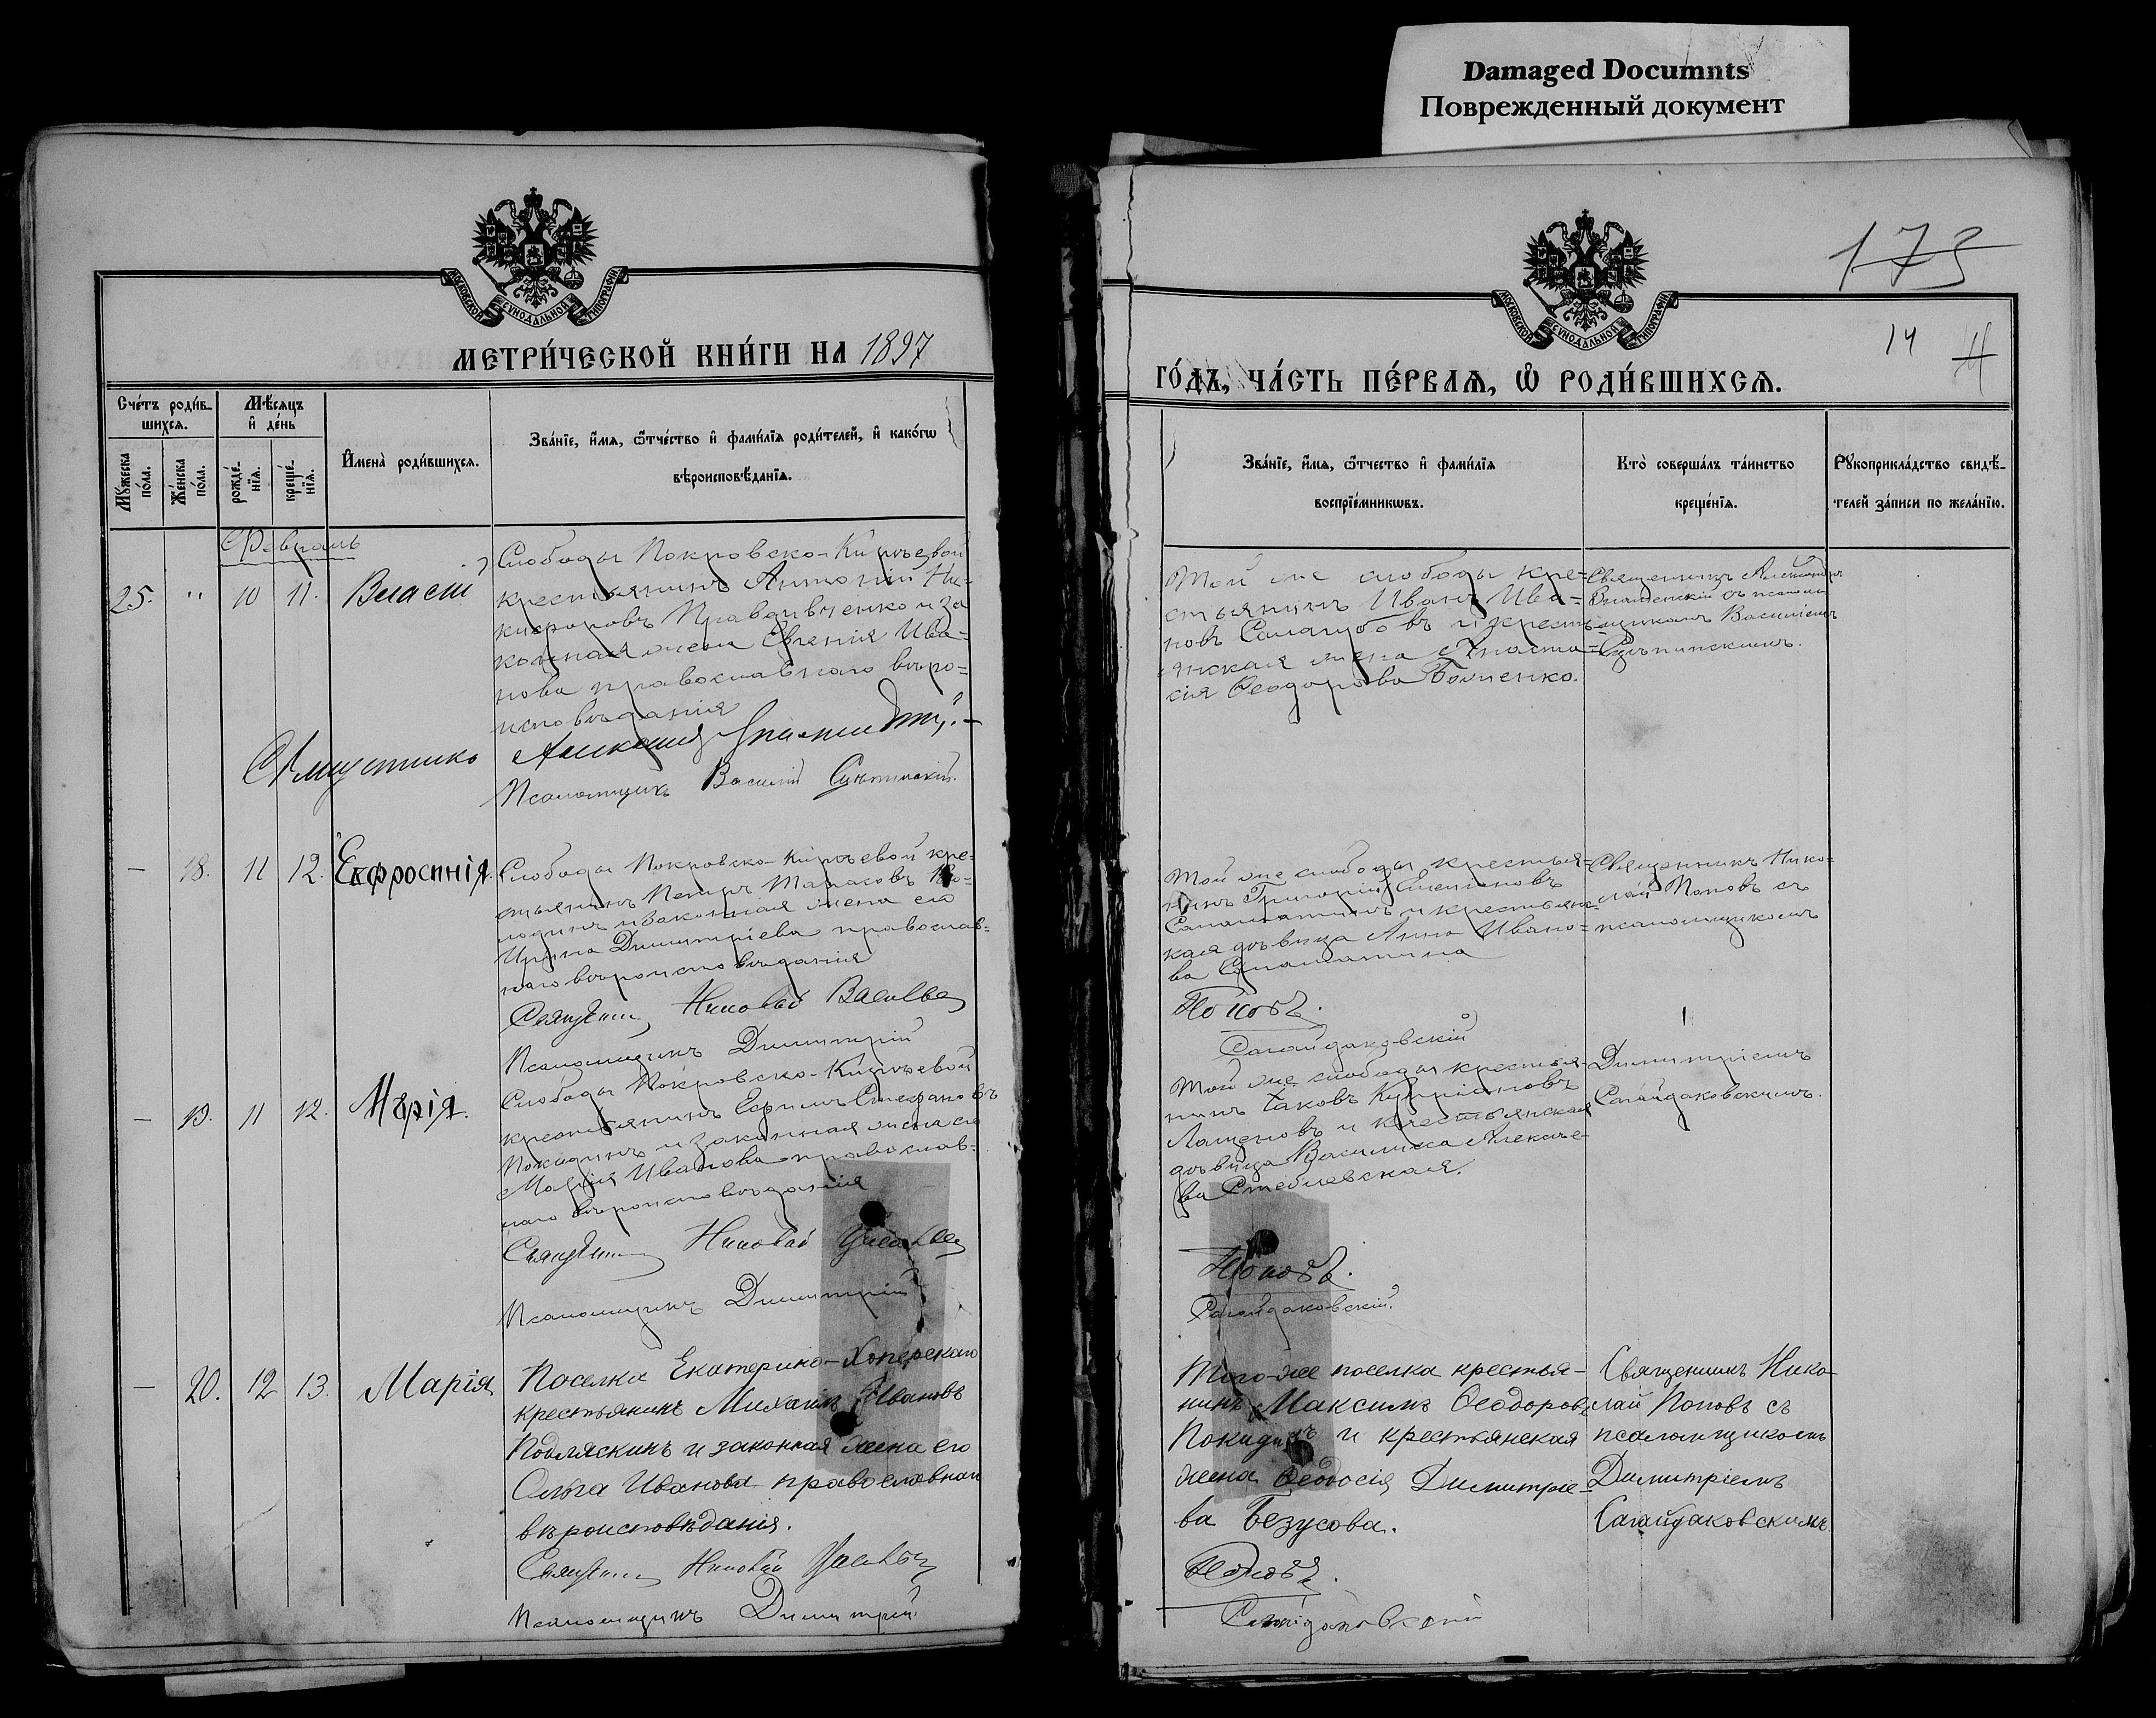 Damaged Documnts
Поврежденный документ
МОСКОВСКОЙ СУНОДАЛЬНОЙ ТИПОГРАФІИ
МЕТРИ́ЧЕСКОЙ КНИ́ГИ НА 1897
Сче́тъ роди́в-
шихся.
Мѣ́сяцъ
и҆ де́нь
Му́жеска
по́ла.
Же́нска
по́ла.
рожде́-
нїя.
креще́-
нїя.
И҆мена̀ роди́вшихся.
Зва́нїе, и҆́мя, ѻ҆́тчество и҆ фами́лїя роди́телей, и҆ како́гѡ
вѣроисповѣ́данїя.
Февраль
25. " 10 11. Власій
Слободы Покровско-Кирѣевой
крестьянинъ Антоній Ни-
кифоровъ Правдивченко и за
конная жена Евгенія Ива-
нова православнаго вѣро-
исповѣданія
Священникъ
Псаломщикъ Василій
— 18. 11 12. Евфросинія.
Слободы Покровско-Кирѣевой кре-
стьянинъ Петръ Тарасовъ
и законная жена его
Ирина Димитріева православ-
наго вѣроисповѣданія
Священникъ Николай Васильевъ
Псаломщикъ Димитрій
— 19. 11 12. Марія.
Слободы Покровско-Кирѣевой
крестьянинъ Ефимъ Стефановъ
Покидинъ и законная жена его
Марія Иванова православ-
наго вѣроисповѣданія
Священникъ Николай
Псаломщикъ Димитрій
— 20. 12 13. Марія
Поселка Екатерино-Хоперскаго
крестьянинъ Михаилъ Ивановъ
Подляскинъ и законная жена его
Ольга Иванова православнаго
вѣроисповѣданія.
Священникъ Николай
Псаломщикъ Димитрій
173
МОСКОВСКОЙ СУНОДАЛЬНОЙ ТИПОГРАФІИ
14
ГО́ДЪ, ЧА́СТЬ ПЕ́РВАЯ, Ѽ РОДИ́ВШИХСЯ.
Зва́нїе, и҆́мя, ѻ҆́тчество и҆ фами́лїя
воспрїе́мникѡвъ.
Кто̀ соверша́лъ та́инство
креще́нїя.
Рꙋкоприкла́дство свидѣ́-
телей за́писи по жела́нїю.
Той же слободы кре-
стьянинъ Иванъ Ива-
новъ Сологубовъ и кресть-
янская жена Анаста-
сія Ѳеодорова Бойченко.
Священникъ Александръ
съ псалом-
щикомъ Василіемъ
Той же слободы крестья-
нинъ Григорій Степановъ
Саломатинъ и крестьянс-
кая дѣвица Анна Ивано-
ва Саломатина
Поповъ.
Сагайдаковскій
Священникъ Нико-
лай Поповъ съ
псаломщикомъ
Той же слободы крестья-
нинъ Іаковъ Кипріановъ
Лащеновъ и крестьянская
дѣвица Василиса Алексѣе-
ва Стеблевская.
Димитріемъ
Сагайдаковскимъ.
Поповъ.
Сагайдаковскій.
Того-же поселка крестья-
нинъ Максимъ Ѳеодоровъ
Покидинъ и крестьянская
жена Ѳеодосія Димитріе-
ва Безусова.
Священникъ Нико-
лай Поповъ съ
псаломщикомъ
Димитріемъ
Сагайдаковскимъ
Поповъ.
Сагайдаковскій